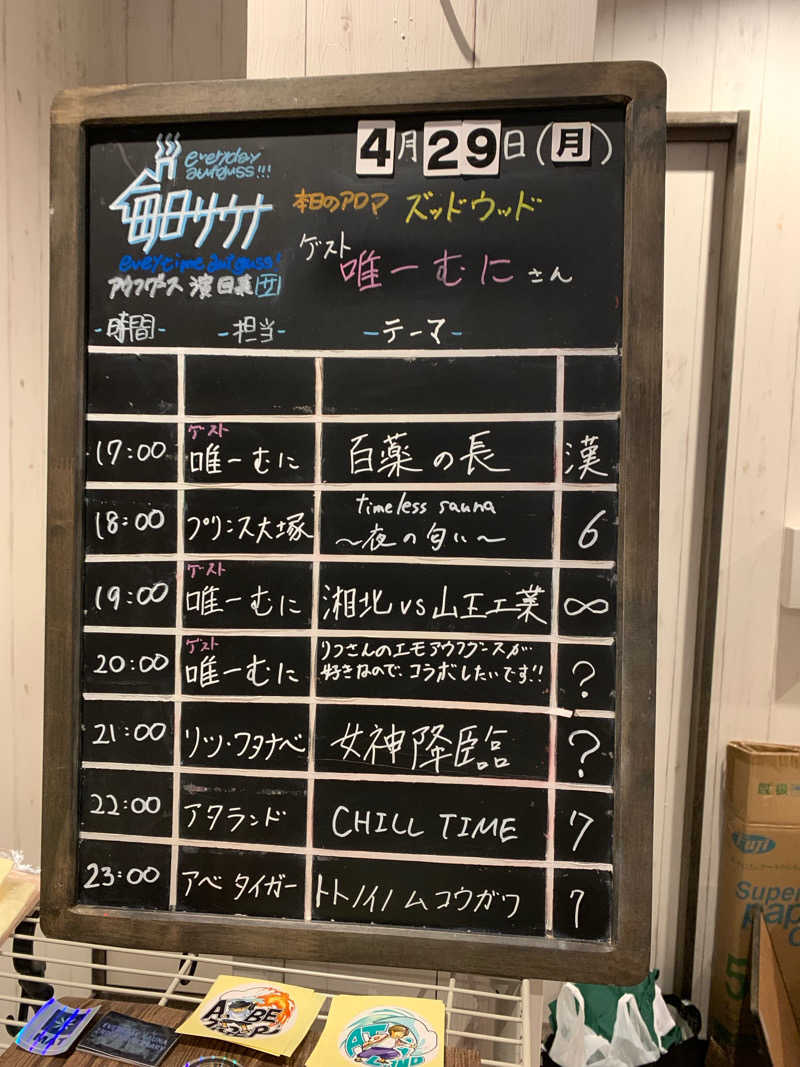 everyday
aufguss!!!
毎日サウナ
everytime aufguss!
アウフグース 濱田幕 サ
4月29日(月)
本日のアロマ ズッドウッド
ゲスト
唯一むに さん
-時間- -担当- -テーマ-
17:00 ゲスト 唯一むに 百薬の長 漢
18:00 プリンス大塚 timeless sauna ～夜の匂い～ 6
19:00 ゲスト 唯一むに 湘北 vs 山王工業 ∞
20:00 ゲスト 唯一むに リツさんのエモアウフグースが
好きなので、コラボしたいです!! ?
21:00 リツ・ワタナベ 女神降臨 ?
22:00 アタランド CHILL TIME 7
23:00 アベ タイガー トトノイノムコウガワ 7
Fuji
Super